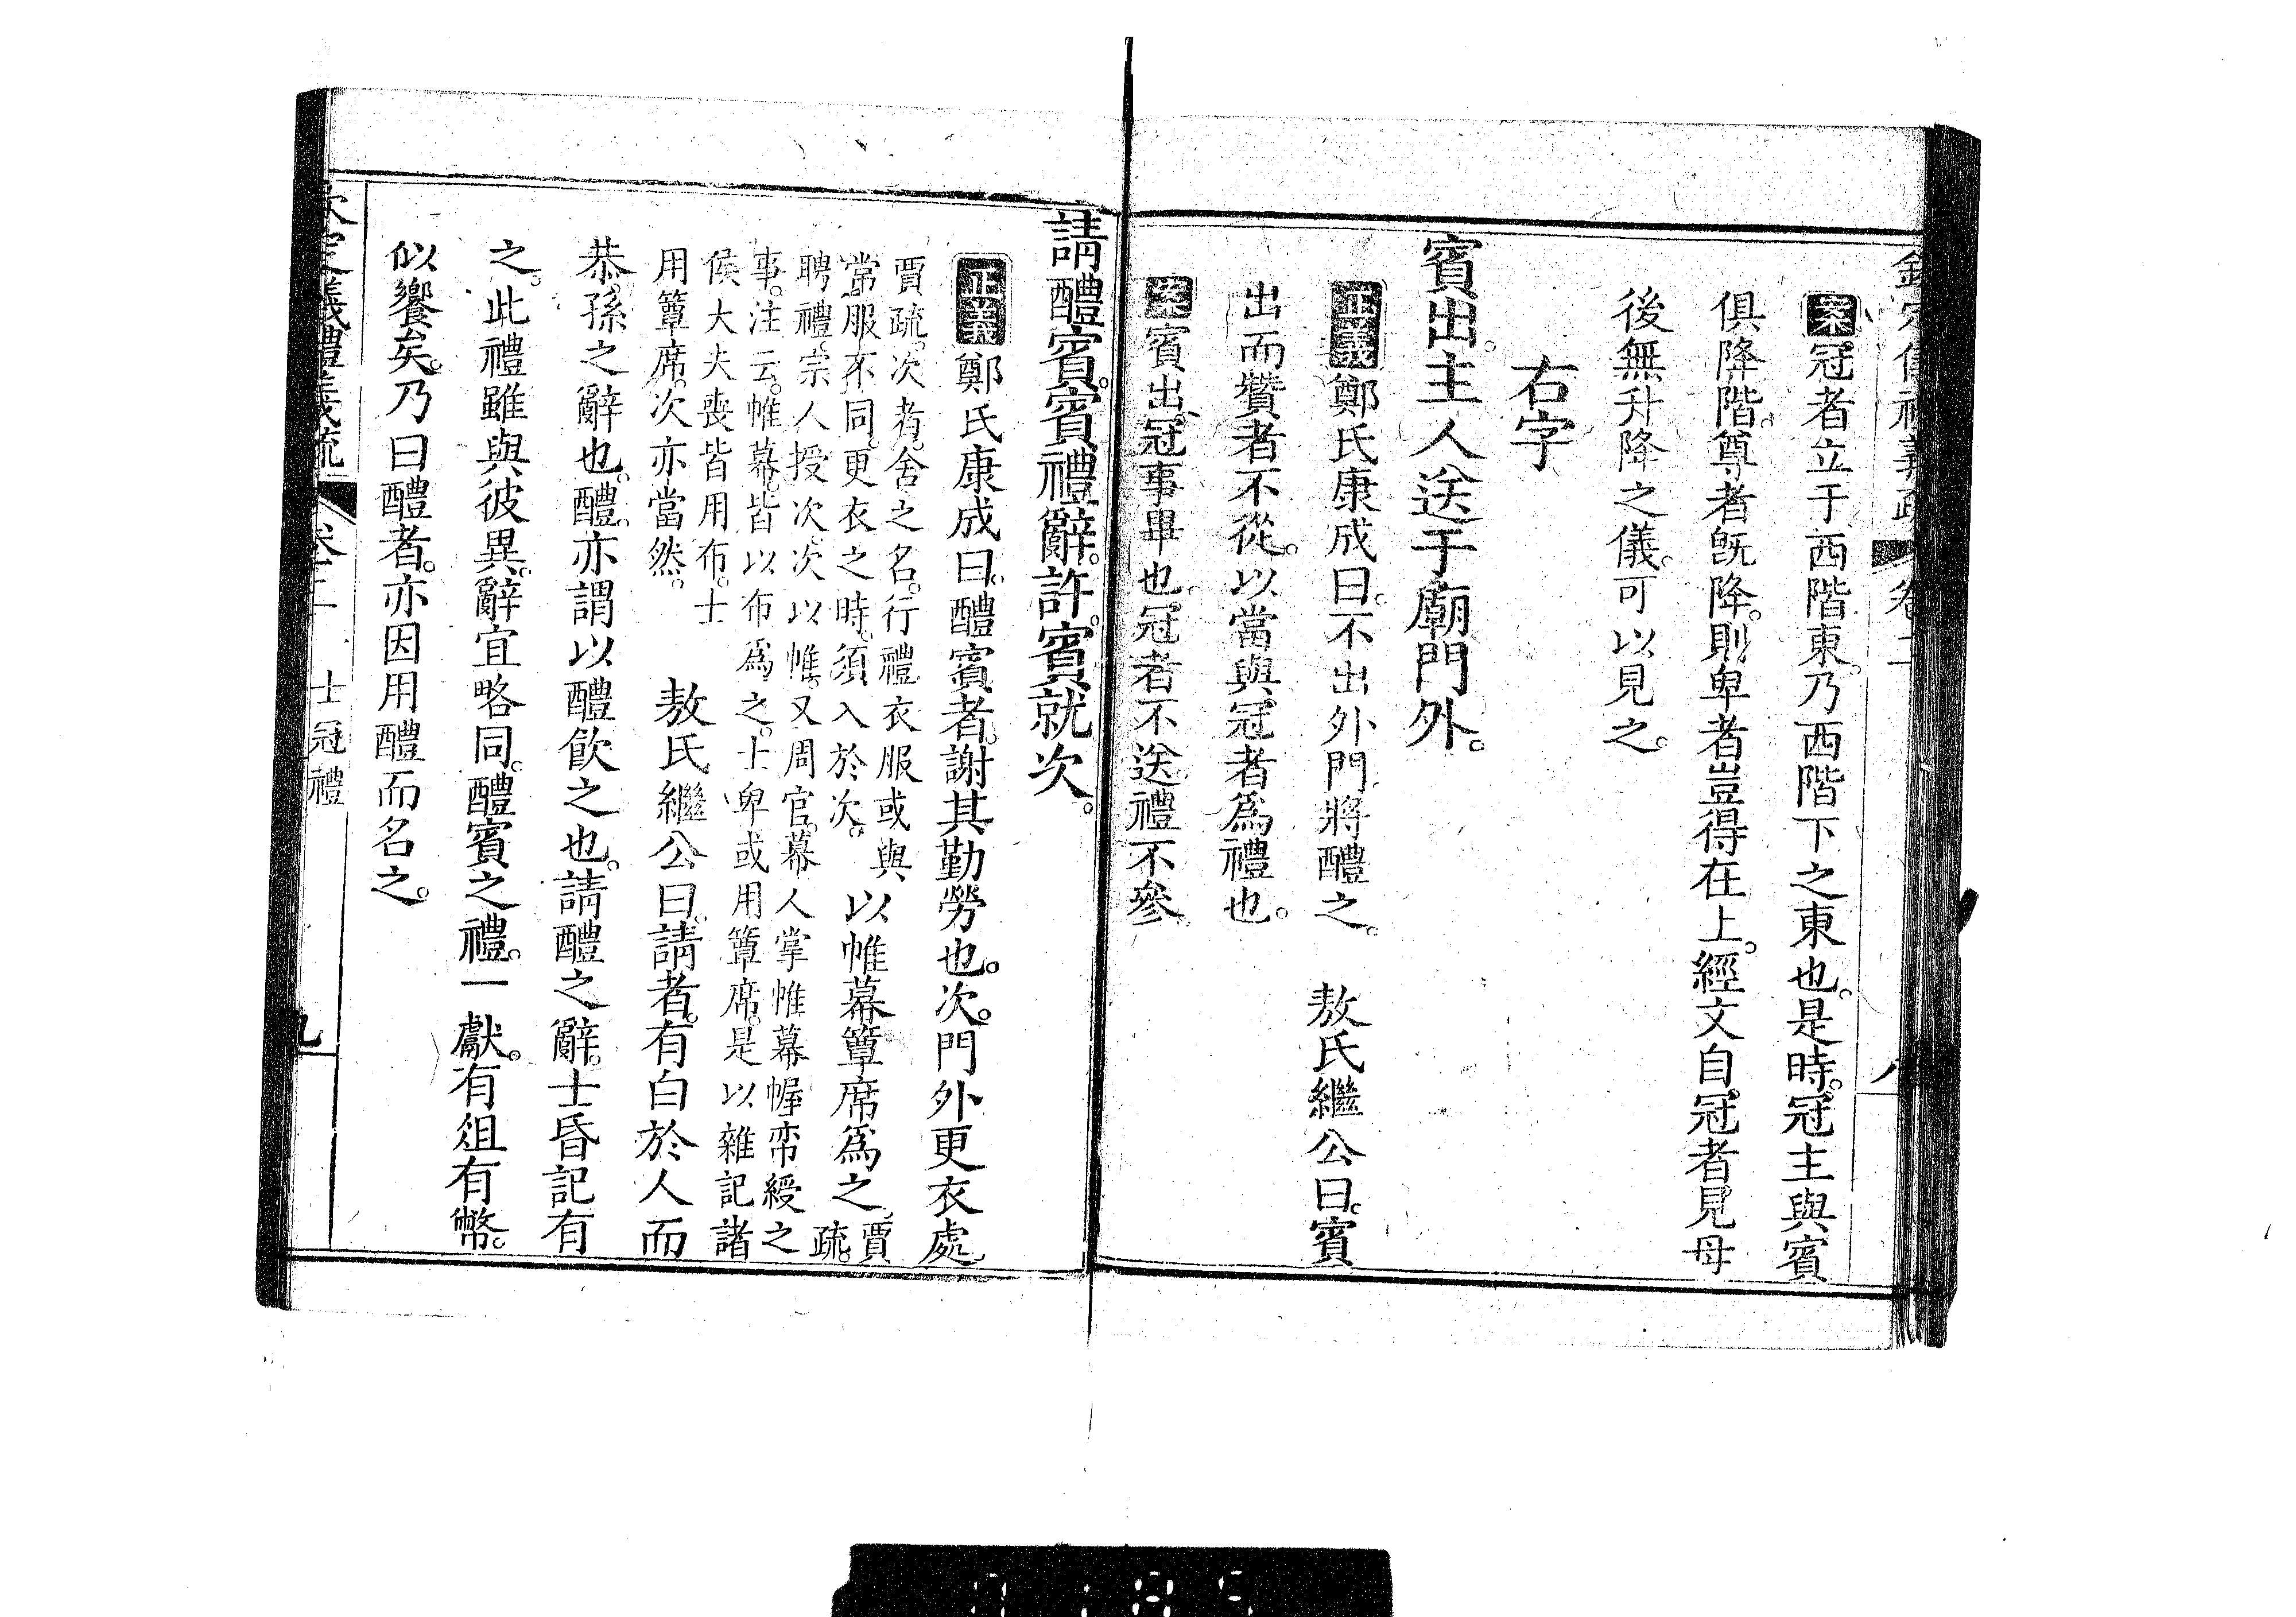 欽定儀禮義疏 卷二 八
案冠者立于西階東。乃西階下之東也。是時。冠主與賓
俱降階。尊者旣降。則卑者豈得在上。經文自。冠者見母
後無升降之儀。可以見之。
右字
賓出。主人送于廟門外。
正義鄭氏康成曰。不出外門將醴之。 敖氏繼公曰。賓
出而贊者不從。以當與。冠者爲禮也。
案賓出。冠事畢也。冠者不送禮不參。
請醴賓。賓禮辭。許。賓就次。
正義鄭氏康成曰。醴賓者。謝其勤勞也。次。門外更衣處。
賈疏。次者。舍之名。行禮衣服或與
常服不同。更衣之時。須入於次。 以帷幕簟席爲之。賈
疏。
聘禮。宗人授次。次以帷。又周官。幕人掌帷幕幄帟綬之
事。注云。帷幕。皆以布爲之。士卑或用簟席。是以雜記諸
侯大夫喪皆用布。士
用簟席。次亦當然。 敖氏繼公曰。請者。有白於人而
恭孫之辭也。醴。亦謂以醴飮之也。請醴之辭。士昏記有
之。此禮雖與彼異。辭宜略同。醴賓之禮。一獻。有俎有幣。
似饗矣。乃曰醴者。亦因用醴而名之。
欽定儀禮義疏 卷二 士冠禮 九